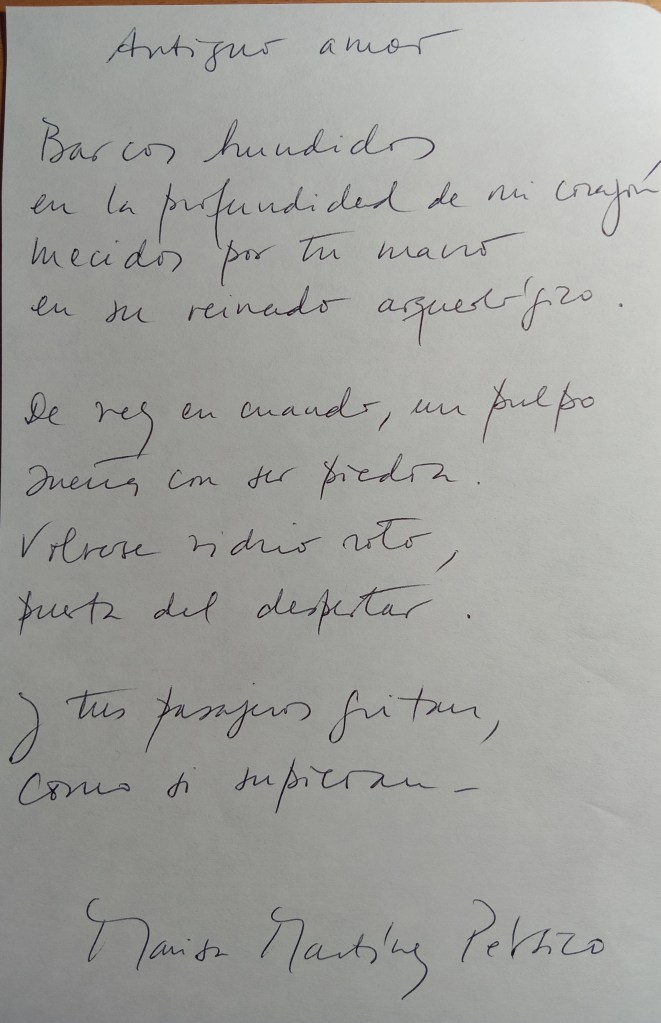 Antiguo amor
Barcos hundidos
en la profundidad de mi corazón
mecidos por tu mano
en su reinado arqueológico.
De vez en cuando, un pulpo
sueña con ser piedra.
Volverse vidrio roto,
puerta del despertar.
Y tus pasajeros gritan,
como si supieran_
Marisa Martínez Pérsico